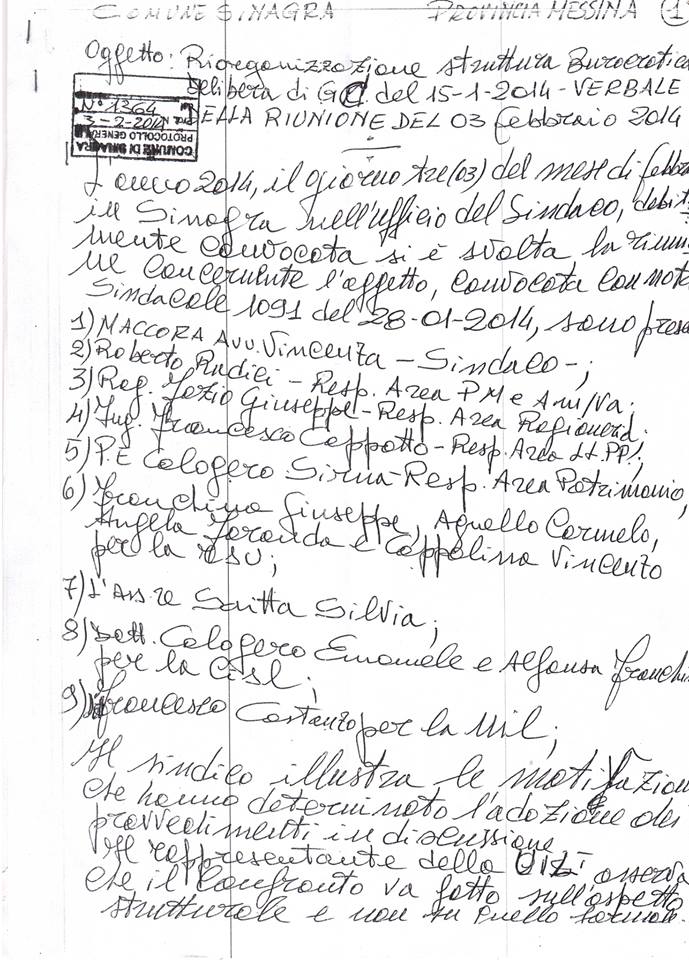 COMUNE SINAGRA PROVINCIA MESSINA (1
Oggetto: Riorganizzazione struttura Burocratica
delibera di G.C. del 15-1-2014 - VERBALE
DELLA RIUNIONE DEL 03 febbraio 2014
COMUNE DI SINAGRA
PROTOCOLLO GENERA
3-2-2014
N° 1364
L'anno 2014, il giorno tre (03) del mese di febbra
in Sinagra nell'ufficio del Sindaco, debita
mente convocata si è svolta la riunio
ne concernente l'oggetto, convocata con nota
Sindacale 1091 del 28-01-2014, sono prese
1) MACCORA Avv. Vincenza - Sindaco -;
2) Roberto Radici - Resp. Area PM e Am/va;
3) Rag. Fazio Giuseppe - Resp. Area Ragioneria;
4) Ing. Francesco Cappotto - Resp. Area LL.PP.;
5) P.E Calogero Sirna - Resp. Area Patrimonio,
6) Franchina Giuseppe, Agnello Carmelo,
Angela Faranda e Coppolina Vincenzo
per la RSU;
7) L'Ass.re Saitta Silvia;
8) Dott. Calogero Emanuele e Alfonsa Franchi
per la Cisl;
9) Francesco Costanzo per la Uil;
Il sindaco illustra le motivazion
che hanno determinato l'adozione dei
provvedimenti in discussione
Il rappresentante della osserva
che il confronto va fatto sull'aspetto
strutturale e non su quello formale.